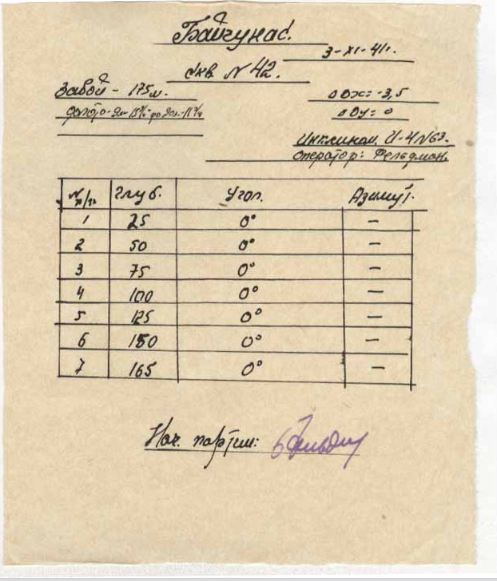 Байчунас.
3-XI-41г.
Скв. №42.
Забой - 175м.
ΔOX=-3,5
ΔOУ= 0
Инклином. И-4 №63.
Оператор: Фельдман.
№ п/п Глуб. Угол. Азимут.
1 25 0° —
2 50 0° —
3 75 0° —
4 100 0° —
5 125 0° —
6 150 0° —
7 165 0° —
Нач. партии: